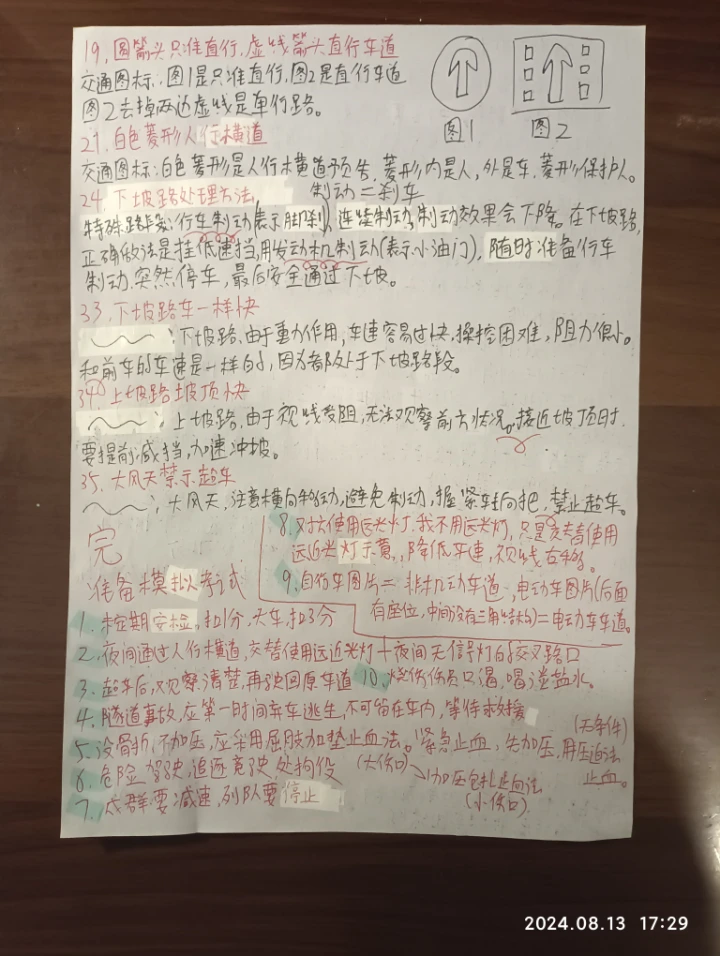 19，圆箭头只准直行，虚线箭头直行车道
交通图标：图1是只准直行，图2是直行车道
图2去掉两边虚线是单行路。
图1
图2
21，白色菱形人行横道
交通图标：白色菱形是人行横道预告，菱形内是人，外是车，菱形保护人。
24，下坡路处理方法，
制动＝刹车
特殊路段：行车制动(表示脚刹)，连续制动，制动效果会下降。在下坡路，
正确做法是挂低速挡，用发动机制动(表示小油门)，随时准备行车
制动，突然停车，最后安全通过下坡。
33，下坡路车一样快
：下坡路，由于重力作用，车速容易过快，操控困难，阻力很小。
和前车的车速是一样的，因为都处于下坡路段。
34，上坡路坡顶快
；上坡路，由于视线受阻，无法观察前方状况，接近坡顶时，
要提前减挡，加速冲坡。
35，大风天禁示超车
；大风天，注意横向移动，避免制动，握紧车转向把，禁止超车。
完
8，对方使用远光灯，我不用远光灯，只是交替使用
远近光灯示意，降低车速，视线右移。
9，自行车图片＝非机动车道，电动车图片(后面
有座位，中间没有三角结构)＝电动车车道。
准备模拟考试
1，未定期安检，扣1分，大车扣3分
2，夜间通过人行横道，交替使用远近光灯＋夜间无信号灯的交叉路口
3，超车后，观察清楚，再驶回原车道
10，烧伤伤员口渴，喝淡盐水。
4，隧道事故，应第一时间弃车逃生，不可留在车内，等待救援
5，没骨折，不加压，应采用屈肢加垫止血法。紧急止血，先加压，用压迫法
(无条件)
止血。
(大伤口)
加压包扎止血法
(小伤口)
6，危险驾驶，追逐竞驶，处拘役
7，成群要减速，列队要停止
2024.08.13 17:29